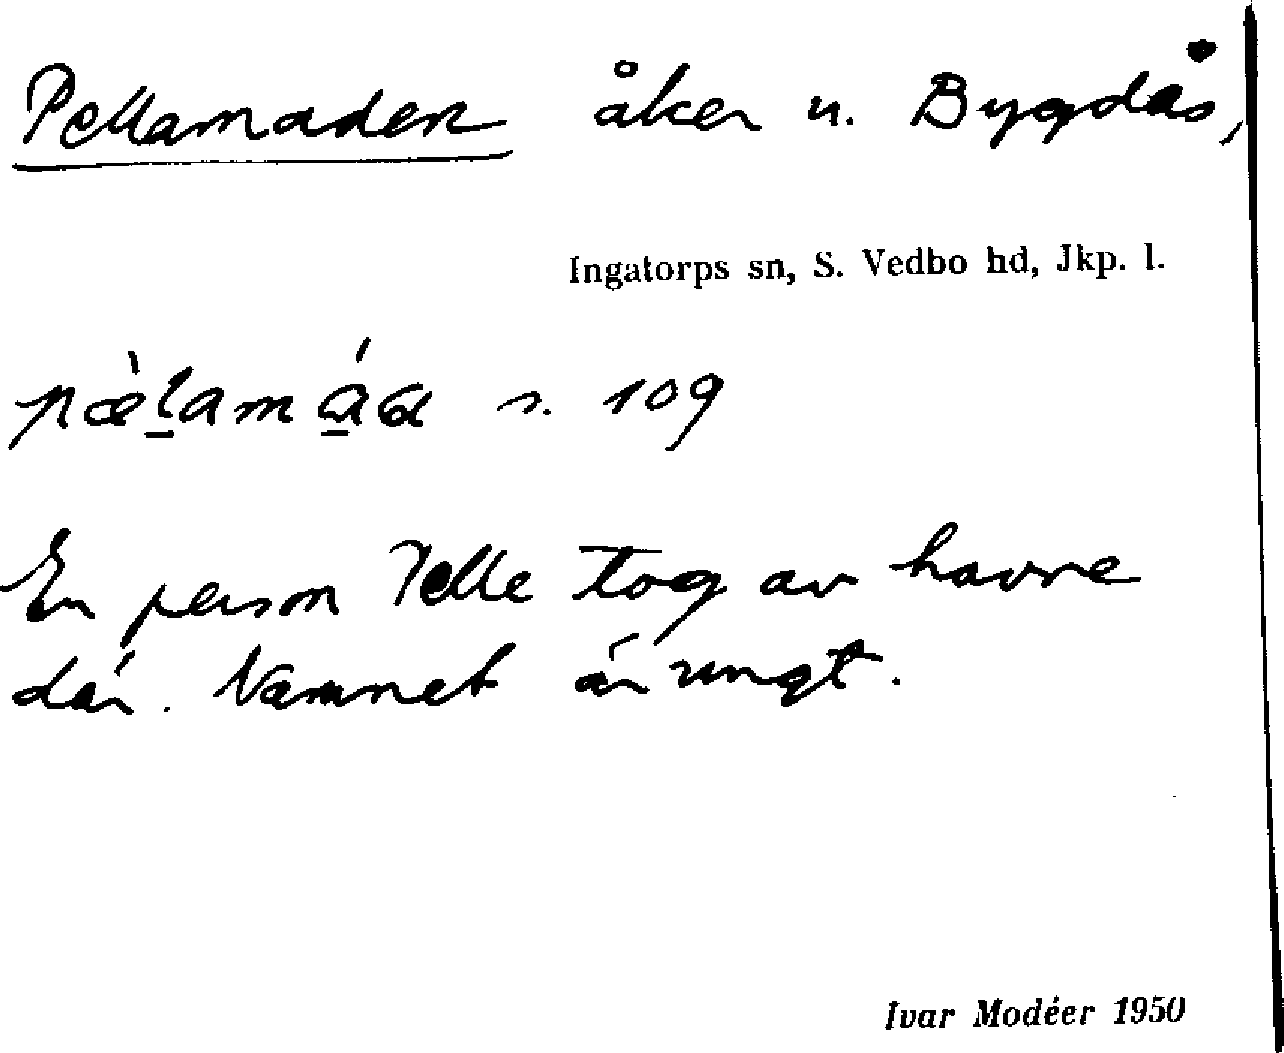 Pellamaden åker u. Bygdås,
Ingatorps sn, S. Vedbo hd, Jkp. l.
s. 109
En person Pelle tog av havre
där. Namnet är ungt.
Ivar Modéer 1950